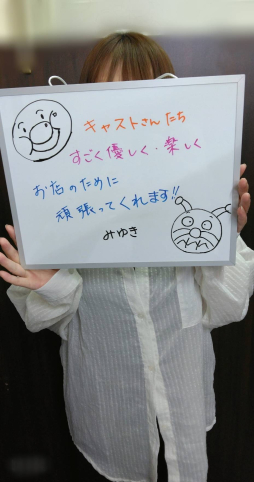 キャストさんたち
すごく優しく・楽しく
お店のために
頑張ってくれます!!
みゆき